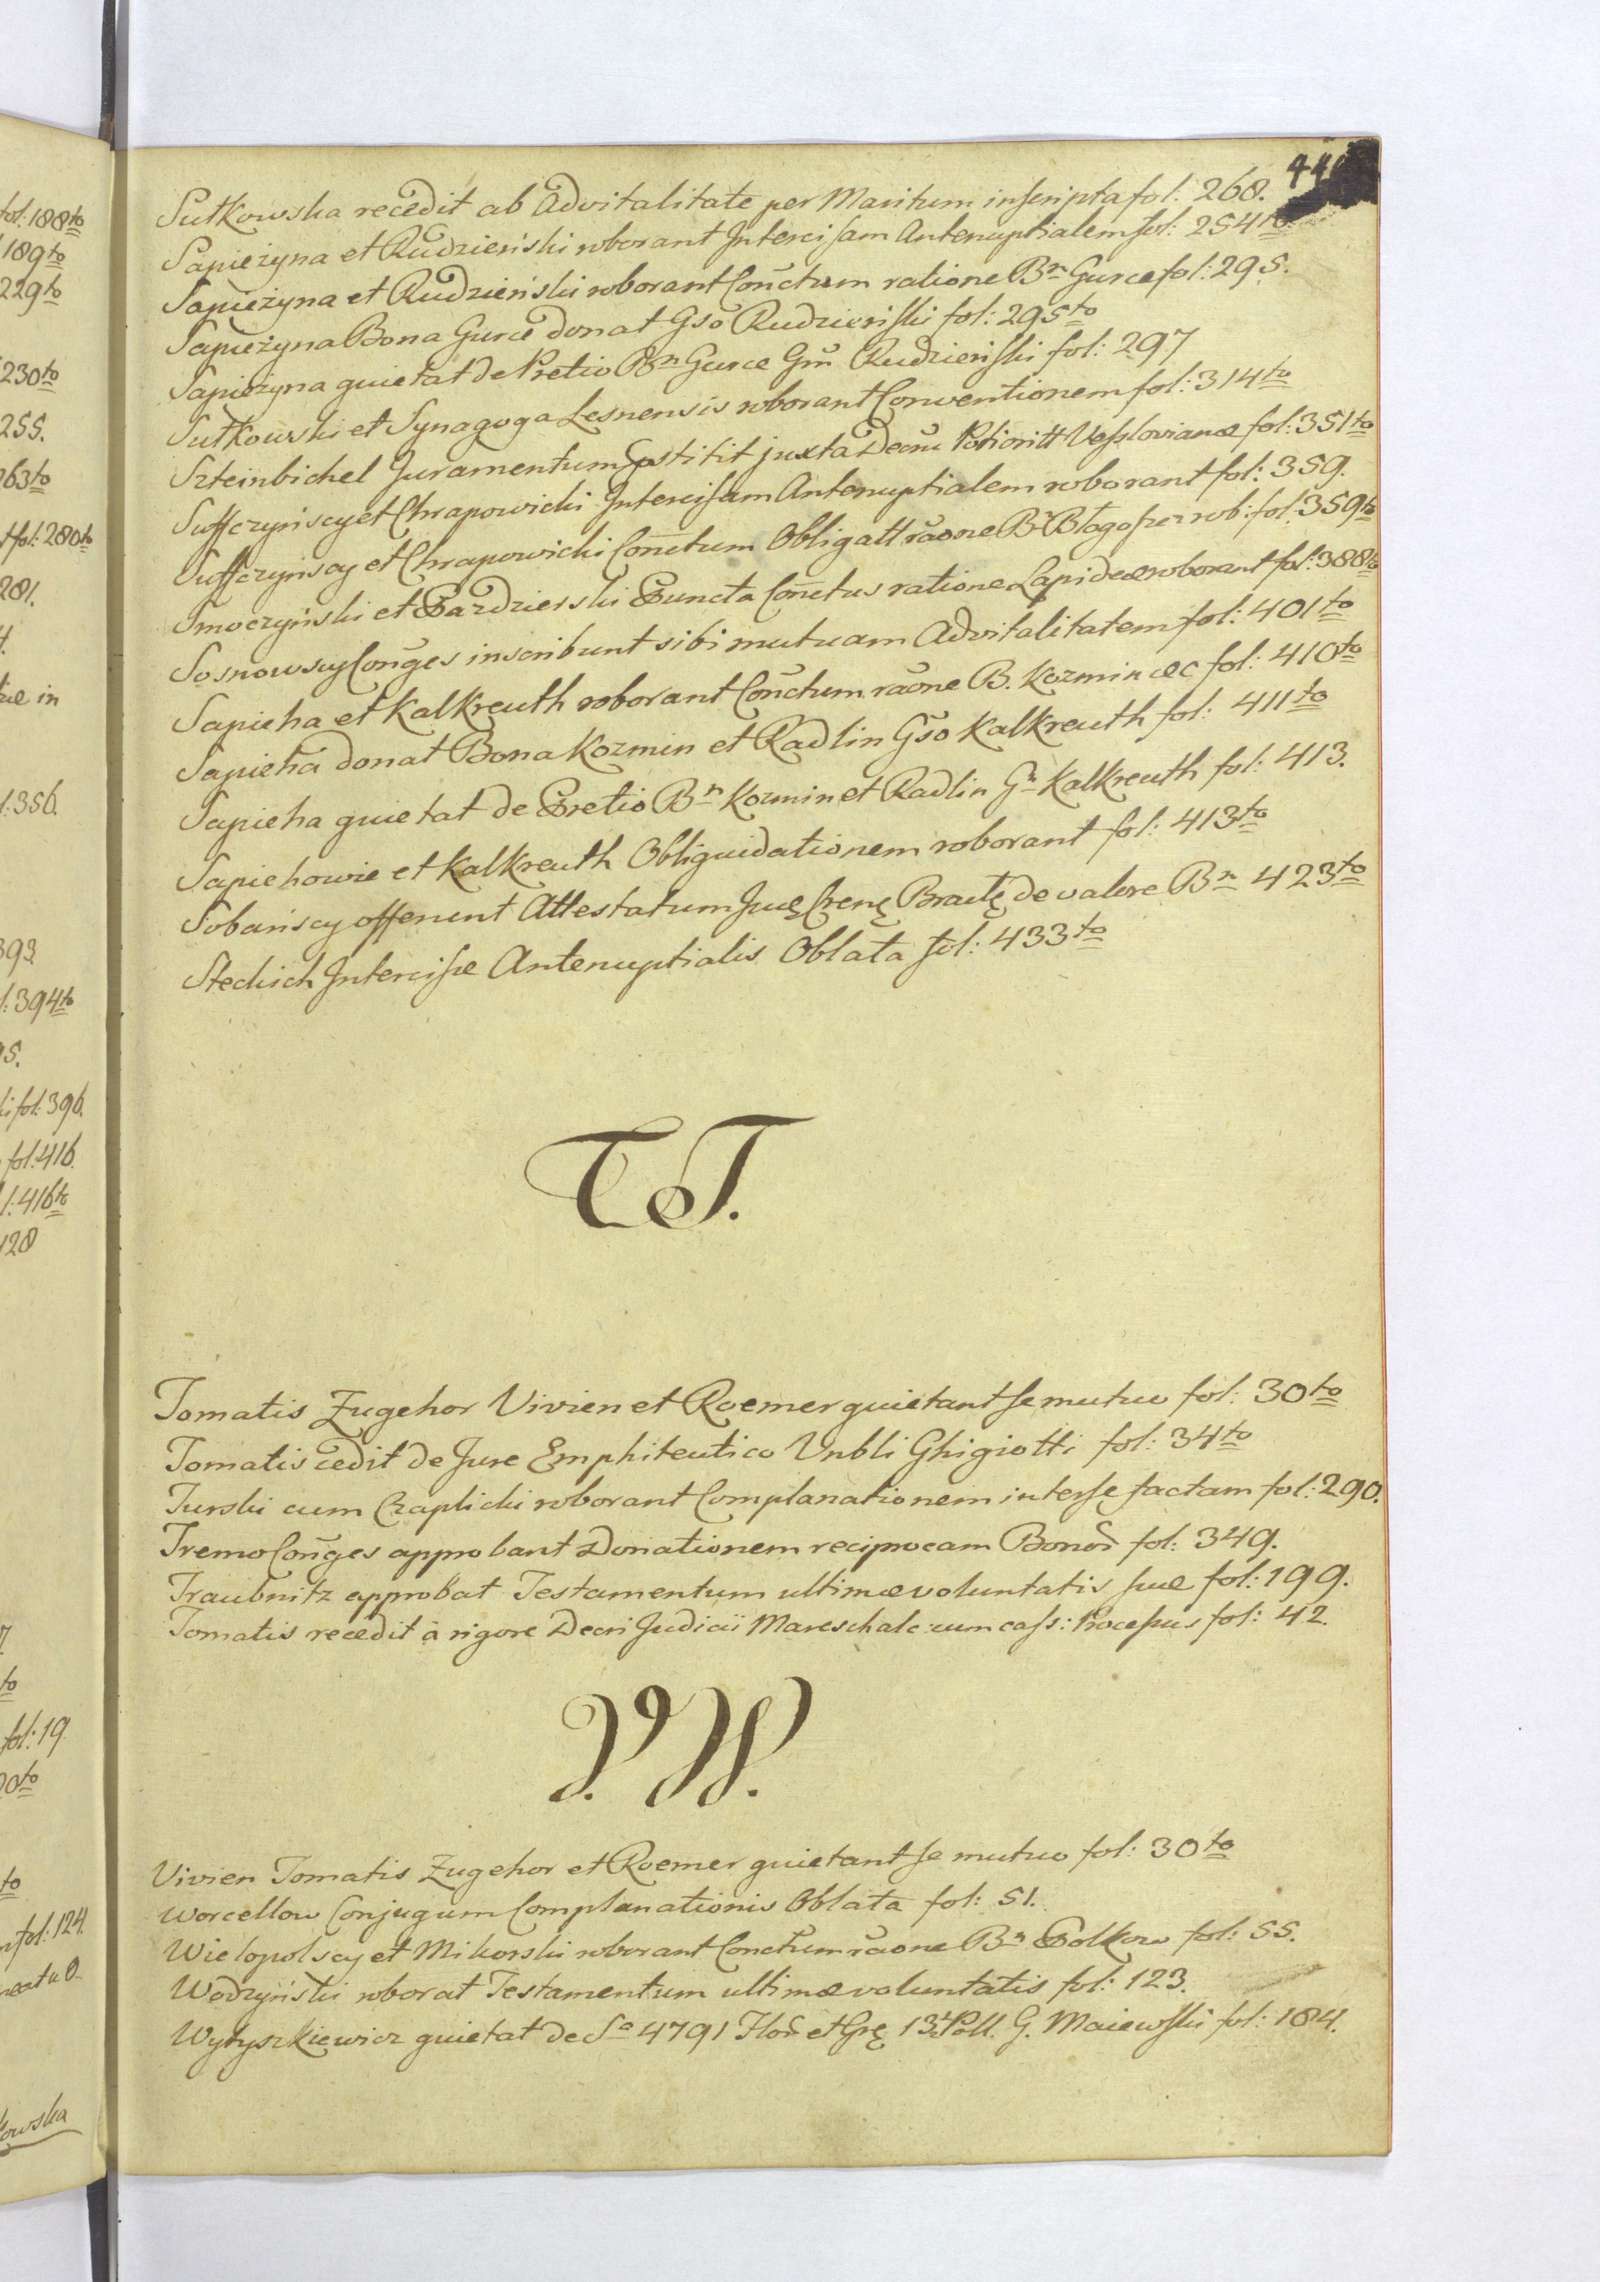 Sutkowska recedit ab Advitalitate per Maritum inscripta fol: 268.
Sapieżyna et Rudzieński roborant Intercisam Antenuptialem fol: 254to
Sapieżyna et Rudzieński roborant Conctum ratione Bn Gurce fol: 295.
Sapieżyna Bona Gurce donat Gso Rudzieński fol: 295to
Sapieżyna quietat de Pretio Bn Gurce Gm Rudzieński fol: 297
Sutkowski et Synagoga Lesnensis roborant Conventionem fol: 314to
Szteinbichel Juramentum pstitit juxta Decru Potioritt Vesslovianæ fol: 351to
Suffczyńscy et Chrapowicki Intercisam Antenuptialem roborant fol: 359.
Suffczyńscy et Chrapowicki Conctum Obligatt raone Br Błogoszez rob: fol: 359to
Smoczyński et Pazdzierski Puncta Conctus ratione Lapideæ roborant fol: 388to
Sosnowscy Conges inscribunt sibi mutuam Advitalitatem fol: 401to
Sapieha et Kalkreuth roborant Conctum raone B. Kozmin &c fol: 410to
Sapieha donat Bona Kozmin et Radlin Gso Kalkreuth fol: 411to
Sapieha quietat de Pretio Bn Kozmin et Radlin Gn Kalkreuth fol: 413.
Sapiehowie et Kalkreuth Obliquidationem roborant fol: 413to
Sobańscy offerunt Attestatum de valore Bn 423to
Steckich Intercisæ Antenuptialis Oblata fol: 433to
T T.
Tomatis Zugehor Vivien et Roemer quietant se mutuo fol: 30to
Tomatis cedit de Jure Emphiteutico Vnbli Ghigiotti fol: 34to
Turski cum Czaplicki roborant Complanationem inter se factam fol: 290.
Tremo Conges approbant Donationem reciprocam Bonor fol: 349.
Traubnitz approbat Testamentum ultimæ voluntatis suæ fol: 199.
Tomatis recedit à rigore Decri Judicii Mareschalc: cum cass: Processus fol: 42.
V. W.
Vivien Tomatis Zugehor et Roemer quietant se mutuo fol: 30to
Worcellow Conjugum Complanationis Oblata fol: 51.
Wielopolscy et Mikorski roborant Conctum raone Bn Polkow fol: 55.
Wodzyński roborat Testamentum ultimæ voluntatis fol: 123.
Wytyszkiewicz quietat de Sa 4791 Flor et Grę 13 Poll. G. Maiewski fol: 184.